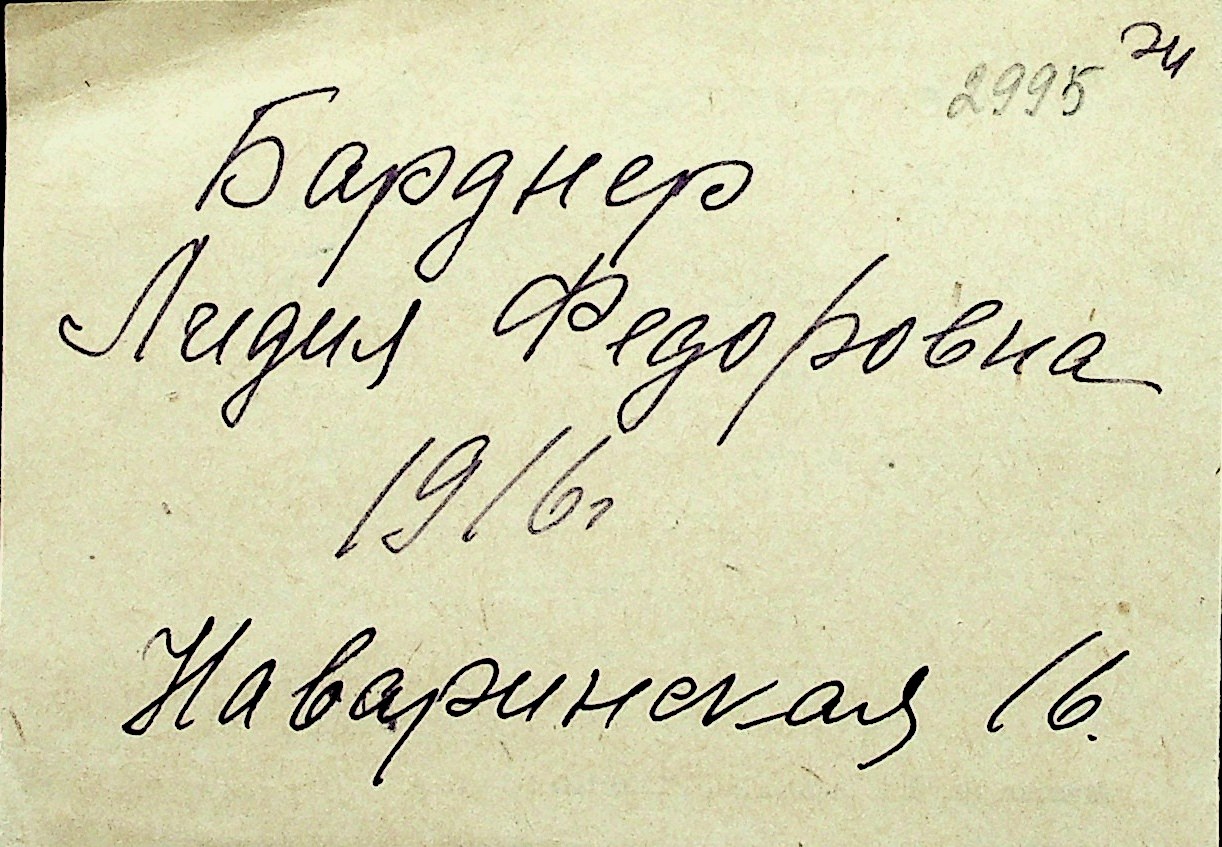 2995
Барднер
Лидия Федоровна
1916г
Наваринская 16.